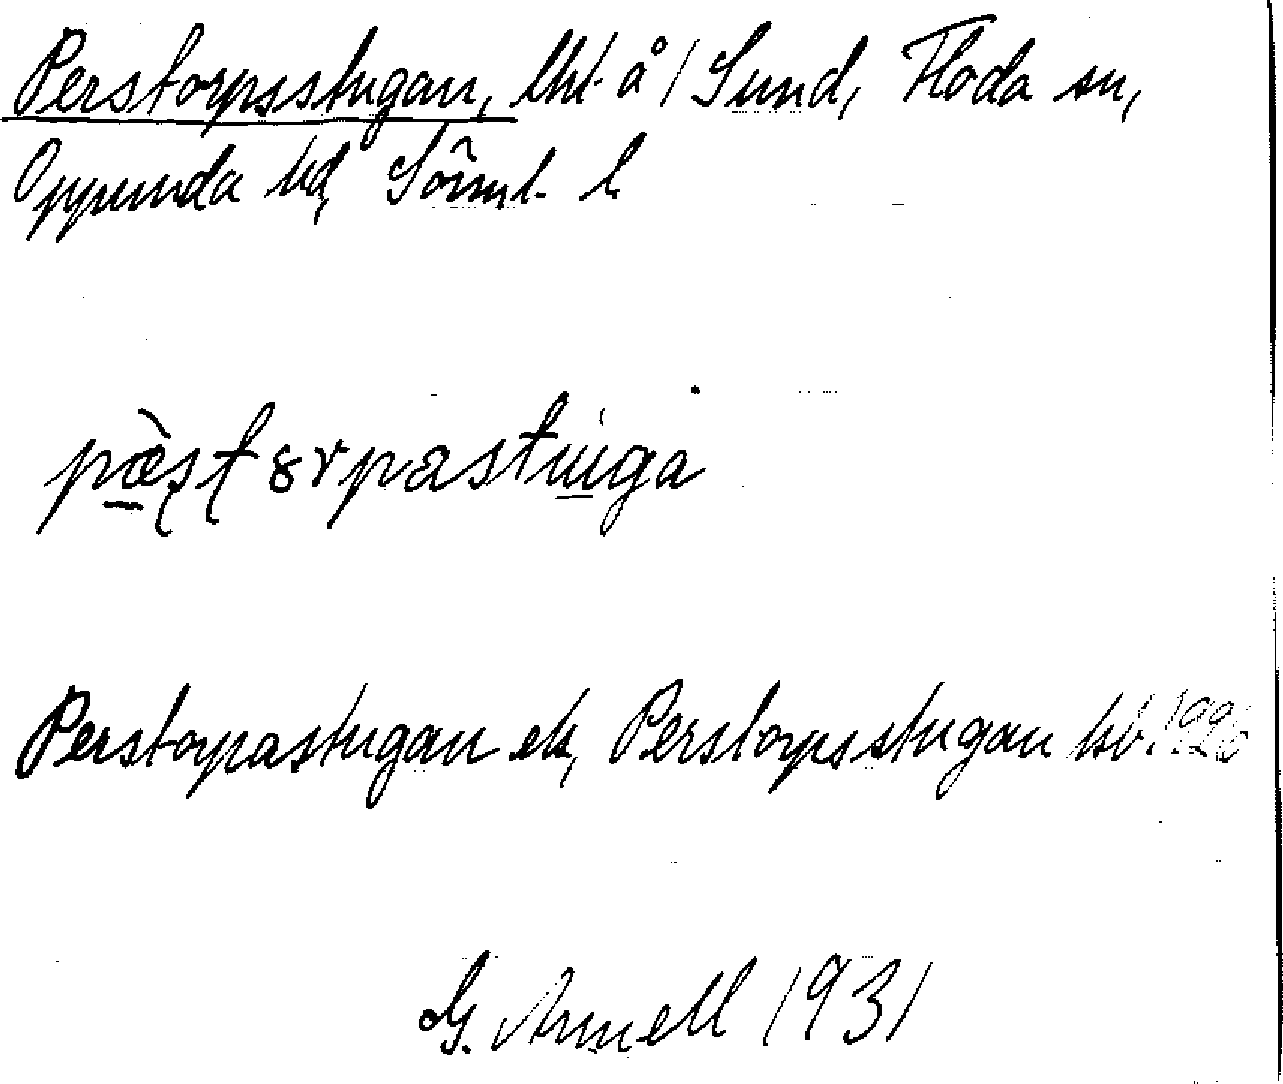 Perstorpsstugan, lht å 1 Sund, Floda sn,
Oppunda hd, Sörml. l.
pæ̀ʂʈɤrpastuga
Perstorpastugan ek, Perstorpsstugan hb. 1926
G. Arnell 1931